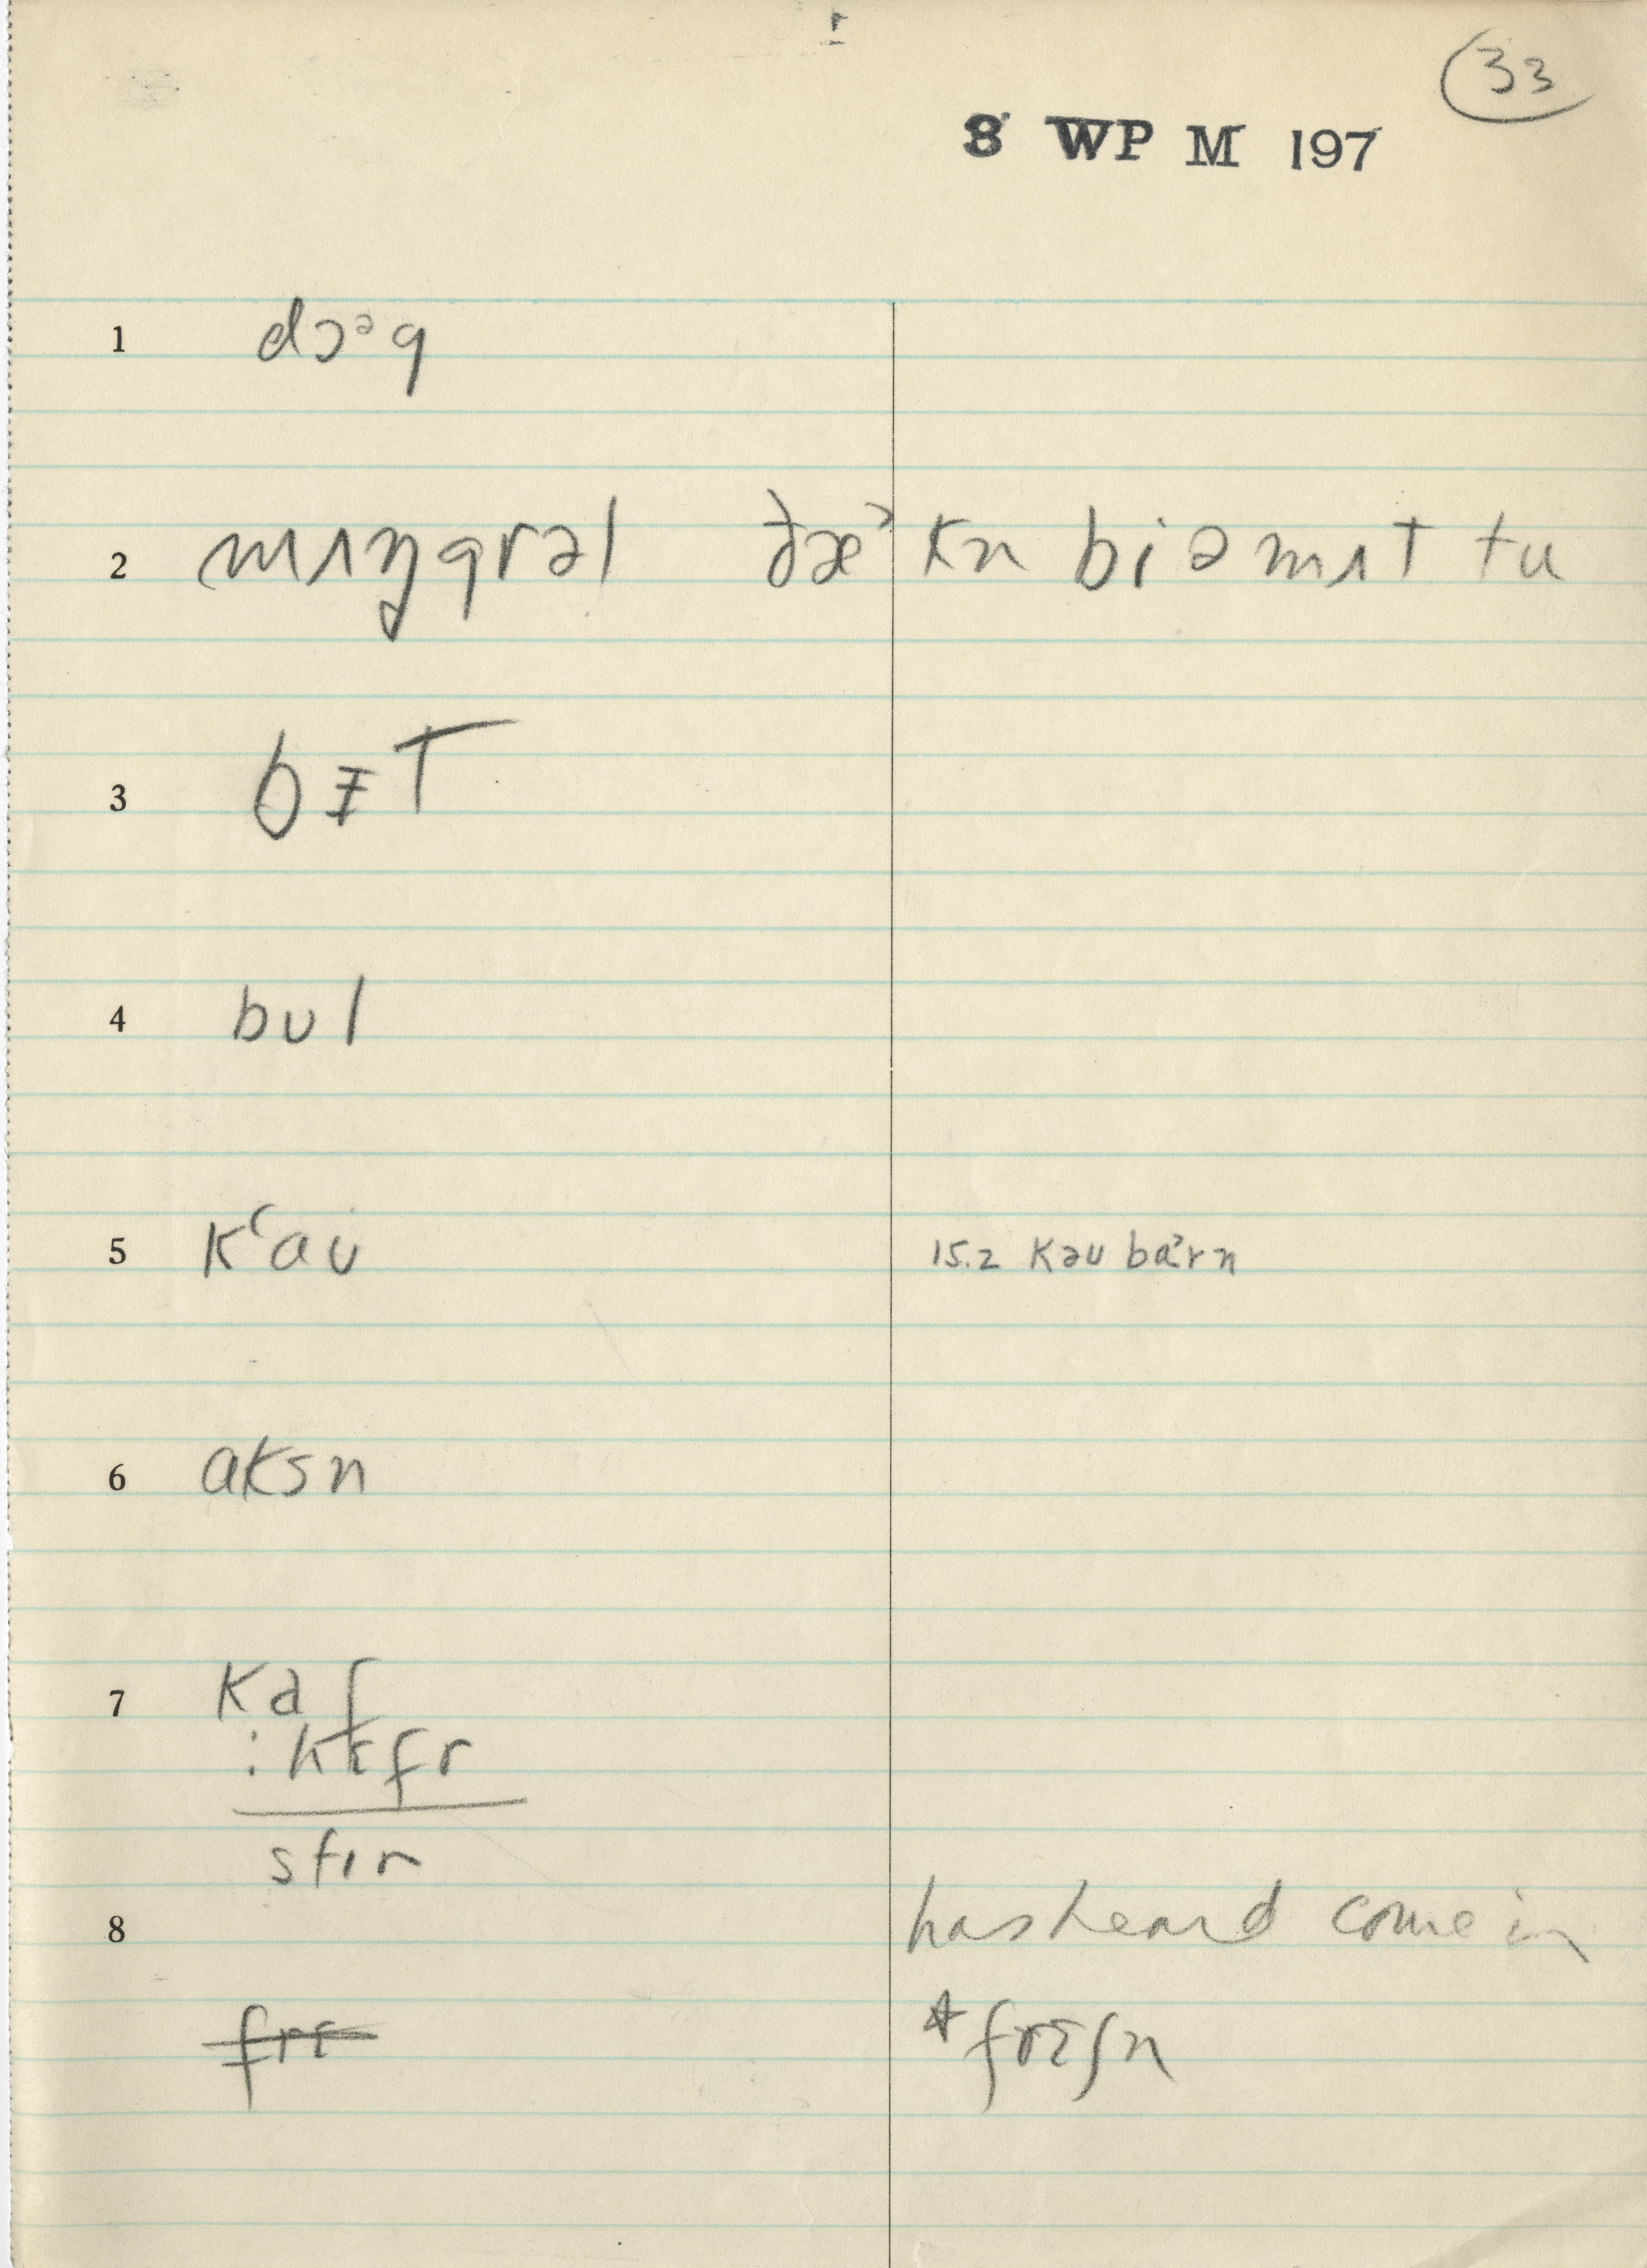 33
8 WP M 197
1 dɔᵊg
2 mɪŋgrəl ðæˀ kn bi ə mɪt tu
3 bᵻT
4 bʊl
5 kʻaʊ 15.2 kəʊ baˀrn
6 aksn
7 ka f
: kɛfr
stır
8 has heard come in
frɛ *frɛʃn